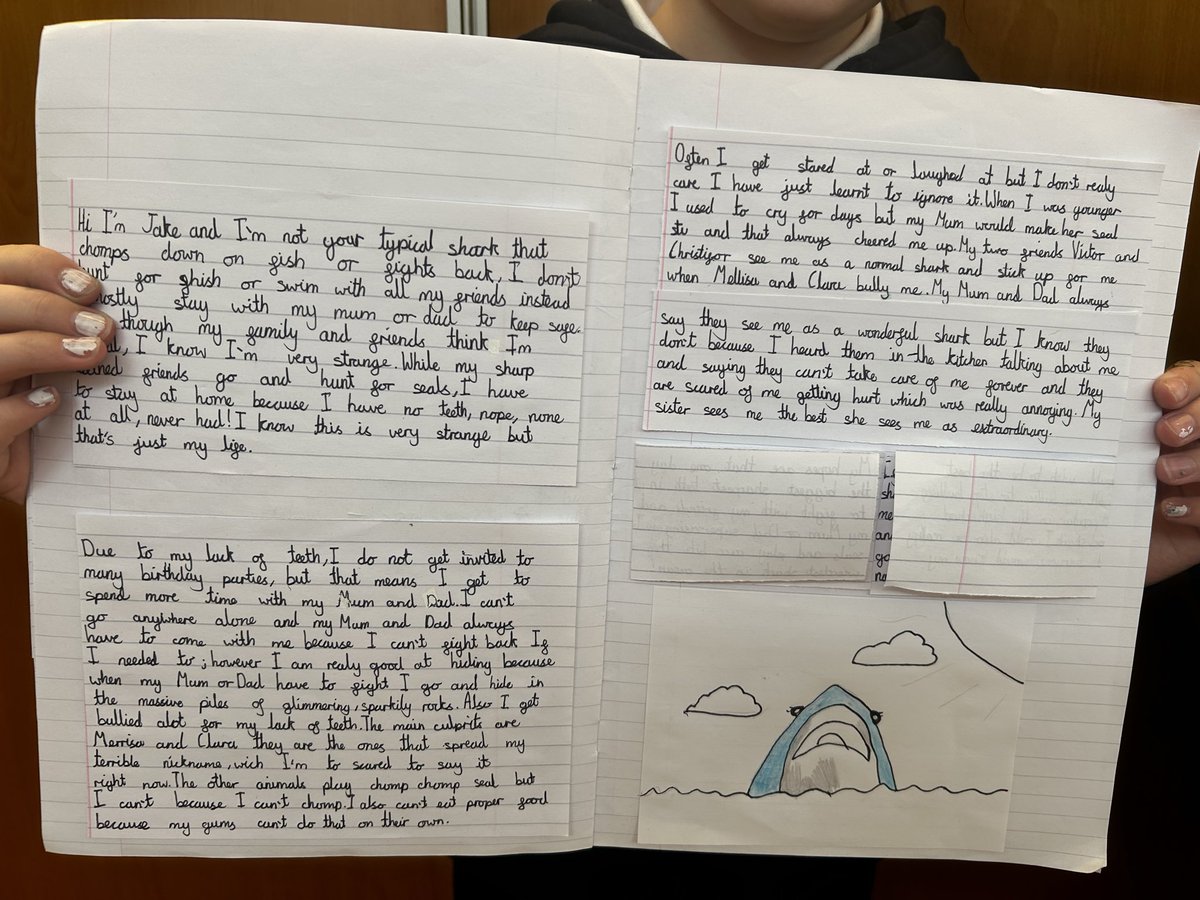 Hi I'm Jake and I'm not your typical shark that
chomps down on fish or fights back, I don't
hunt for ghish or swim with all my friends instead
mostly stay with my mum or dad to keep safe.
though my family and friends think Im
I know I'm very strange. While my sharp
friends go and hunt for seals, I have
to stay at home because I have no teeth, nope, none
at all, never had! I know this is very strange but
that's just my life.
Due to my lack of teeth, I do not get invited to
many birthday parties, but that means I get to
spend more time with my Mum and Dad. I can't
go anywhere alone and my Mum and Dad always
have to come with me because I can't fight back If
I needed to ; however I am realy good at hiding because
when my Mum or Dad have to fight I go and hide in
the massive piles of glimmering, sparkily rocks. Also I get
bullied alot for my lack of teeth. The main culprits are
Merrisa and Clara they are the ones that spread my
terrible nickname, wich I'm to scared to say it
right now. The other animals play chomp chomp seal but
I can't because I can't chomp. I also can't eat proper food
because my gums can't do that on their own.
Often I get stared at or loughed at but I don't realy
care I have just learnt to ignore it. When I was younger
I used to cry for days but my Mum would make her seal
stu and that always cheered me up. My two friends Victor and
Christifor see me as a normal shark and stick up for me
when Mollisa and Clara bully me. My Mum and Dad always
say they see me as a wonderful shark but I know they
don't because I heard them in the kitchen talking about me
and saying they can't take care of me forever and they
are scared of me getting hurt which was really annoying. My
sister sees me the best she sees me as extraordinary.